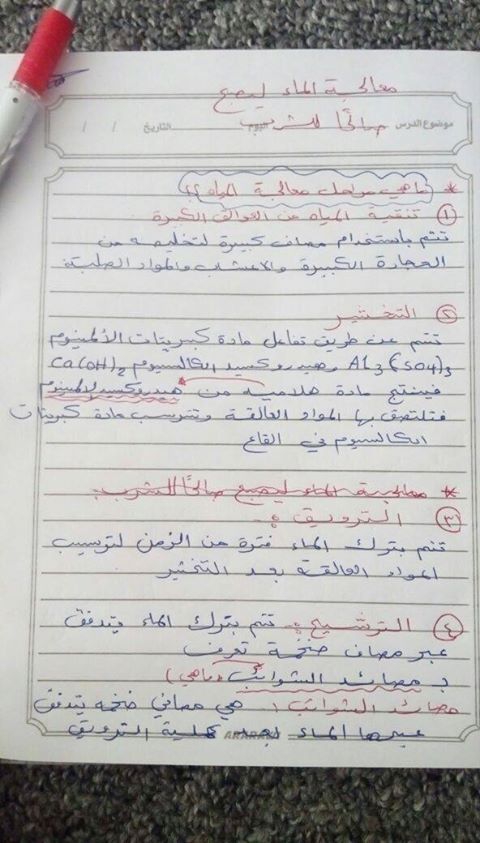 معالجة الماء ليصبح
صالحًا للشرب
موضوع الدرس اليوم التاريخ / /
* ما هي مراحل معالجة المياه ؟؟
① تنقية المياه من العوالق الكبيرة
تتم باستخدام مصافي كبيرة لتخليصه من
الحجارة الكبيرة والاعشاب والمواد الصلبة
② التخثير
تتم عن طريق تفاعل مادة كبريتات الألمنيوم
Al3(SO4)3 وهيدروكسيد الكالسيوم Ca(OH)2
فينتج مادة هلامية من هيدروكسيد الالمنيوم
فتلتصق بها المواد العالقة وتترسب مادة كبريتات
الكالسيوم في القاع
* معالجة الماء ليصبح صالحًا للشرب
③ الترويق :
تتم بترك الماء فترة من الزمن لترسيب
المواد العالقة بعد التخثير
④ الترشيح : تتم بترك الماء يتدفق
عبر مصاف ضخمة تعرف
بـ مصائد الشوائب (ماهي)
مصائد الشوائب : هي مصافي ضخمه يتدفق
عبرها الماء بعد عملية الترويق